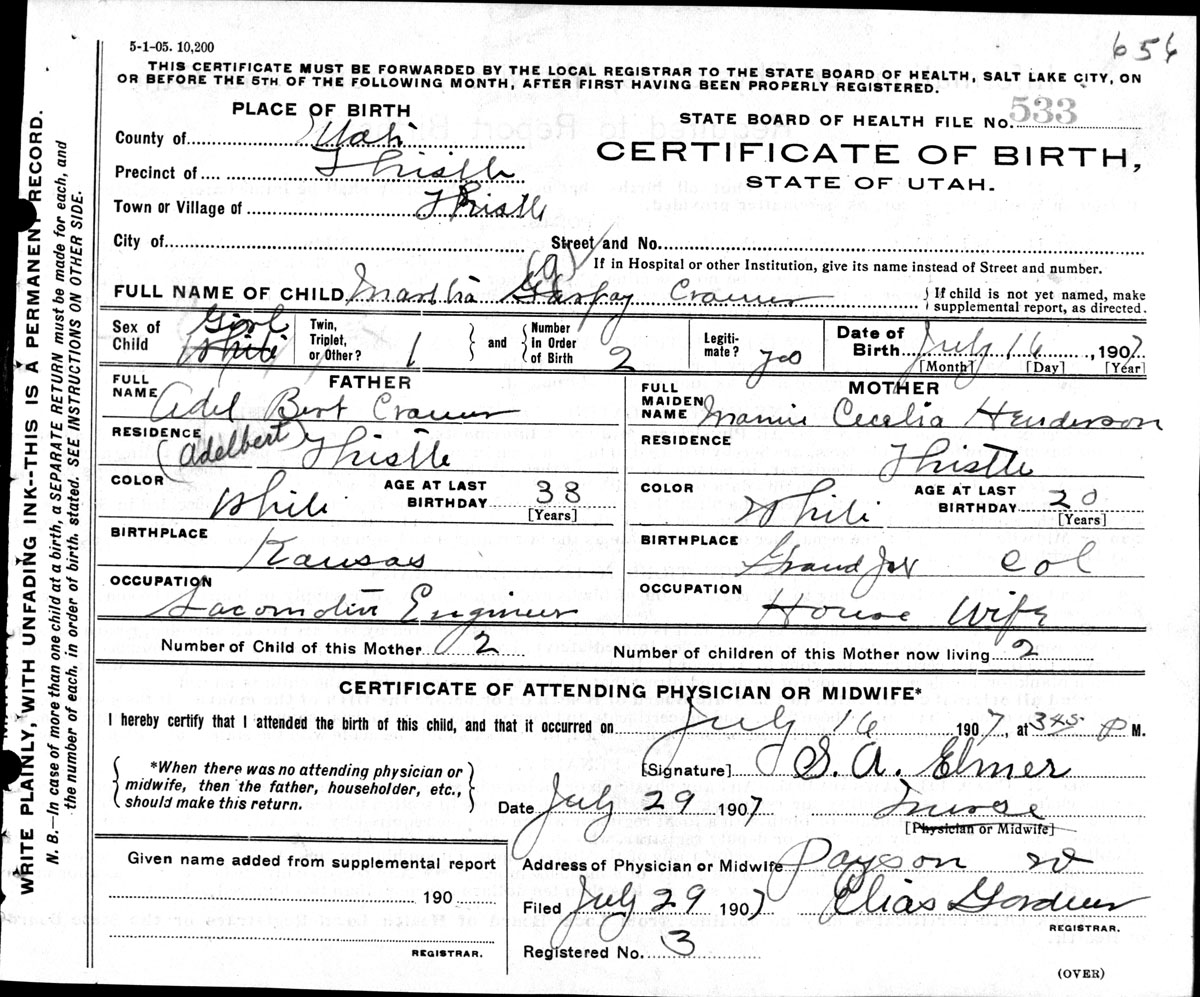 5-1-05. 10,200
656
THIS CERTIFICATE MUST BE FORWARDED BY THE LOCAL REGISTRAR TO THE STATE BOARD OF HEALTH, SALT LAKE CITY, ON
OR BEFORE THE 5TH OF THE FOLLOWING MONTH, AFTER FIRST HAVING BEEN PROPERLY REGISTERED.
PLACE OF BIRTH
STATE BOARD OF HEALTH FILE No. 533
County of Utah
CERTIFICATE OF BIRTH,
STATE OF UTAH.
Precinct of Thistle
Town or Village of Thistle
City of
Street and No.
(a)
If in Hospital or other Institution, give its name instead of Street and number.
FULL NAME OF CHILD Martha Cramer
{ If child is not yet named, make
supplemental report, as directed.
Sex of Child Girl White
Twin, Triplet, or Other? 1
} and {
Number in Order of Birth 2
Legitimate? yes
Date of Birth July 16, 1907
[Month] [Day] [Year]
FATHER
FULL NAME Adel Bert Cramer
RESIDENCE (Adelbert) Thistle
COLOR White
AGE AT LAST BIRTHDAY 38
[Years]
BIRTHPLACE
Kansas
OCCUPATION
Locomotive Engineer
MOTHER
FULL MAIDEN NAME Mamie Cecelia Henderson
RESIDENCE
Thistle
COLOR White
AGE AT LAST BIRTHDAY 20
[Years]
BIRTHPLACE
Grand Jct Col
OCCUPATION
House Wife
Number of Child of this Mother 2
Number of children of this Mother now living 2
CERTIFICATE OF ATTENDING PHYSICIAN OR MIDWIFE*
I hereby certify that I attended the birth of this child, and that it occurred on July 16 1907, at 345 P M.
{ *When there was no attending physician or
midwife, then the father, householder, etc.,
should make this return. }
[Signature] S. A. Elmer
Date July 29 1907
Nurse
[Physician or Midwife]
Given name added from supplemental report
190
REGISTRAR.
Address of Physician or Midwife Payson
Filed July 29 1907
Elias Gardner
REGISTRAR.
Registered No. 3
(OVER)
WRITE PLAINLY, WITH UNFADING INK--THIS IS A PERMANENT RECORD.
N. B.—In case of more than one child at a birth, a SEPARATE RETURN must be made for each, and
the number of each, in order of birth, stated. SEE INSTRUCTIONS ON OTHER SIDE.